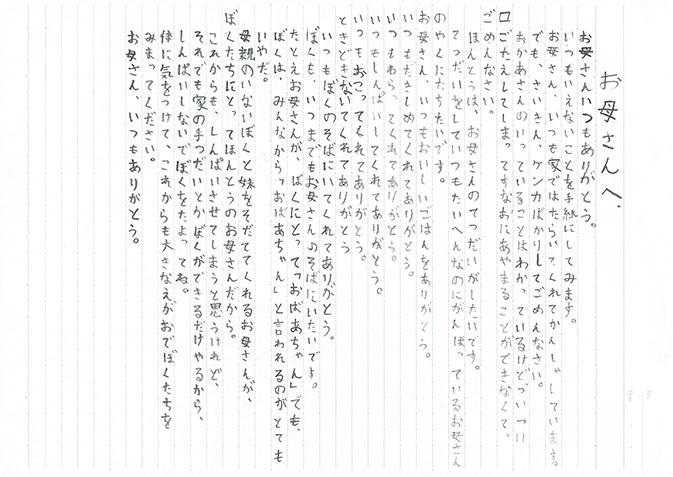 お母さんへ、
お母さんいつもありがとう。
いつもいえないことを手紙にしてみます。
お母さん、いつも家ではたらいてくれてかんしゃしています。
でも、さいきん、ケンカばかりしてごめんなさい。
おかあさんのいっていることはわかっているけど、ついつい
口ごたえしてしまってすなおにあやまることができなくて、
ごめんなさい。
ほんとうは、お母さんのてつだいがしたいです。
てつだいをしていつもたいへんなのにがんばっているお母さん
のやくにたちたいです。
お母さん、いつもおいしいごはんをありがとう。
いつもだきしめてくれてありがとう。
いつもわらってくれてありがとう。
いつもしんぱいしてくれてありがとう。
いつもおこってくれてありがとう。
ときどきないてくれてありがとう
いつもぼくのそばにいてくれてありがとう。
ぼくも、いつまでもお母さんのそばにいたいです。
たとえお母さんが、ぼくにとって「おばあちゃん」でも、
ぼくは、みんなから「おばあちゃん」と言われるのがとても
いやだ。
母親のいないぼくと妹をそだててくれるお母さんが、
ぼくたちにとってほんとうのお母さんだから。
これからも、しんぱいさせてしまうと思うけれど、
それでも家の手つだいとかぼくができるだけやるから、
しんぱいしないでぼくをたよってね。
体に気をつけて、これからも大きなえがおでぼくたちを
みまってください。
お母さん、いつもありがとう。